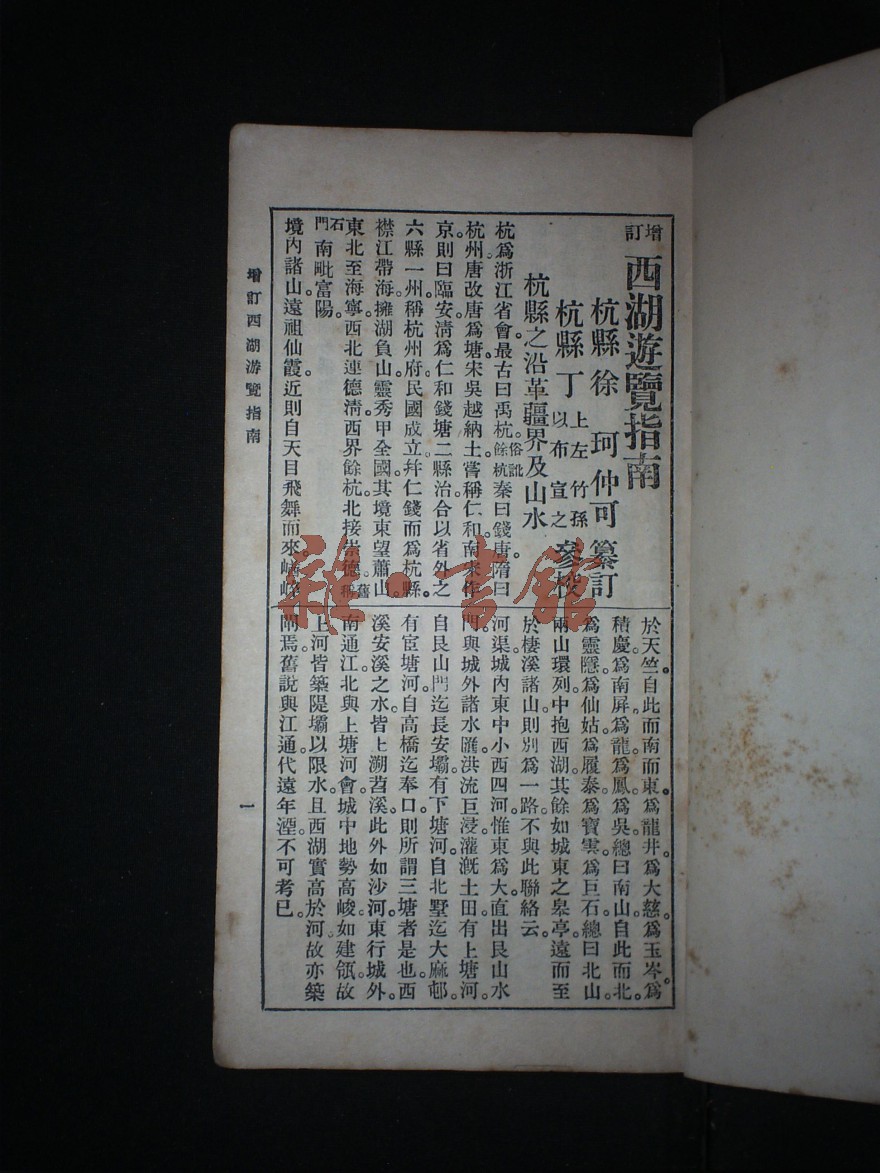 增訂西湖遊覽指南
杭縣徐珂仲可纂訂
杭縣丁上左竹孫以布宣之參校
杭縣之沿革疆界及山水
杭爲浙江省會最古曰禹杭。俗訛餘杭秦曰錢唐。隋曰
杭州。唐改唐爲塘。宋吳越納土。嘗稱仁和。南宋作
京。則曰臨安。清爲仁和錢塘二縣治。合以省外之
六縣一州。稱杭州府。民國成立。幷仁錢而爲杭縣。
襟江帶海。擁湖負山。靈秀甲全國。其境東望蕭山。
東北至海寧。西北連德清。西界餘杭。北接崇德。舊稱
石門南毗富陽。
境內諸山。遠祖仙霞。近則自天目飛舞而來。嶙峋
於天竺。自此而南而東。爲龍井。爲大慈。爲玉岑。爲
積慶。爲南屏。爲龍。爲鳳。爲吳。總曰南山。自此而北。
爲靈隱。爲仙姑。爲履泰。爲寶雲。爲巨石。總曰北山。
兩山環列。中抱西湖。其餘如城東之皋亭。遠而至
於棲溪諸山。則別爲一路。不與此聯絡云。
河渠城內東中小西四河。惟東爲大。直出艮山水
門。與城外諸水匯。洪流巨浸。灌漑土田。有上塘河。
自艮山門迄長安壩。有下塘河。自北墅迄大麻邨。
有宦塘河。自高橋迄奉口。則所謂三塘者是也。西
溪安溪之水。皆上溯苕溪。此外如沙河。東行城外。
南通江。北與上塘河會。城中地勢高峻。如建瓴。故
上河皆築隄壩以限水。且西湖實高於河。故亦築
閘焉。舊說與江通。代遠年湮。不可考已。
增訂西湖游覽指南
一
雜·書館